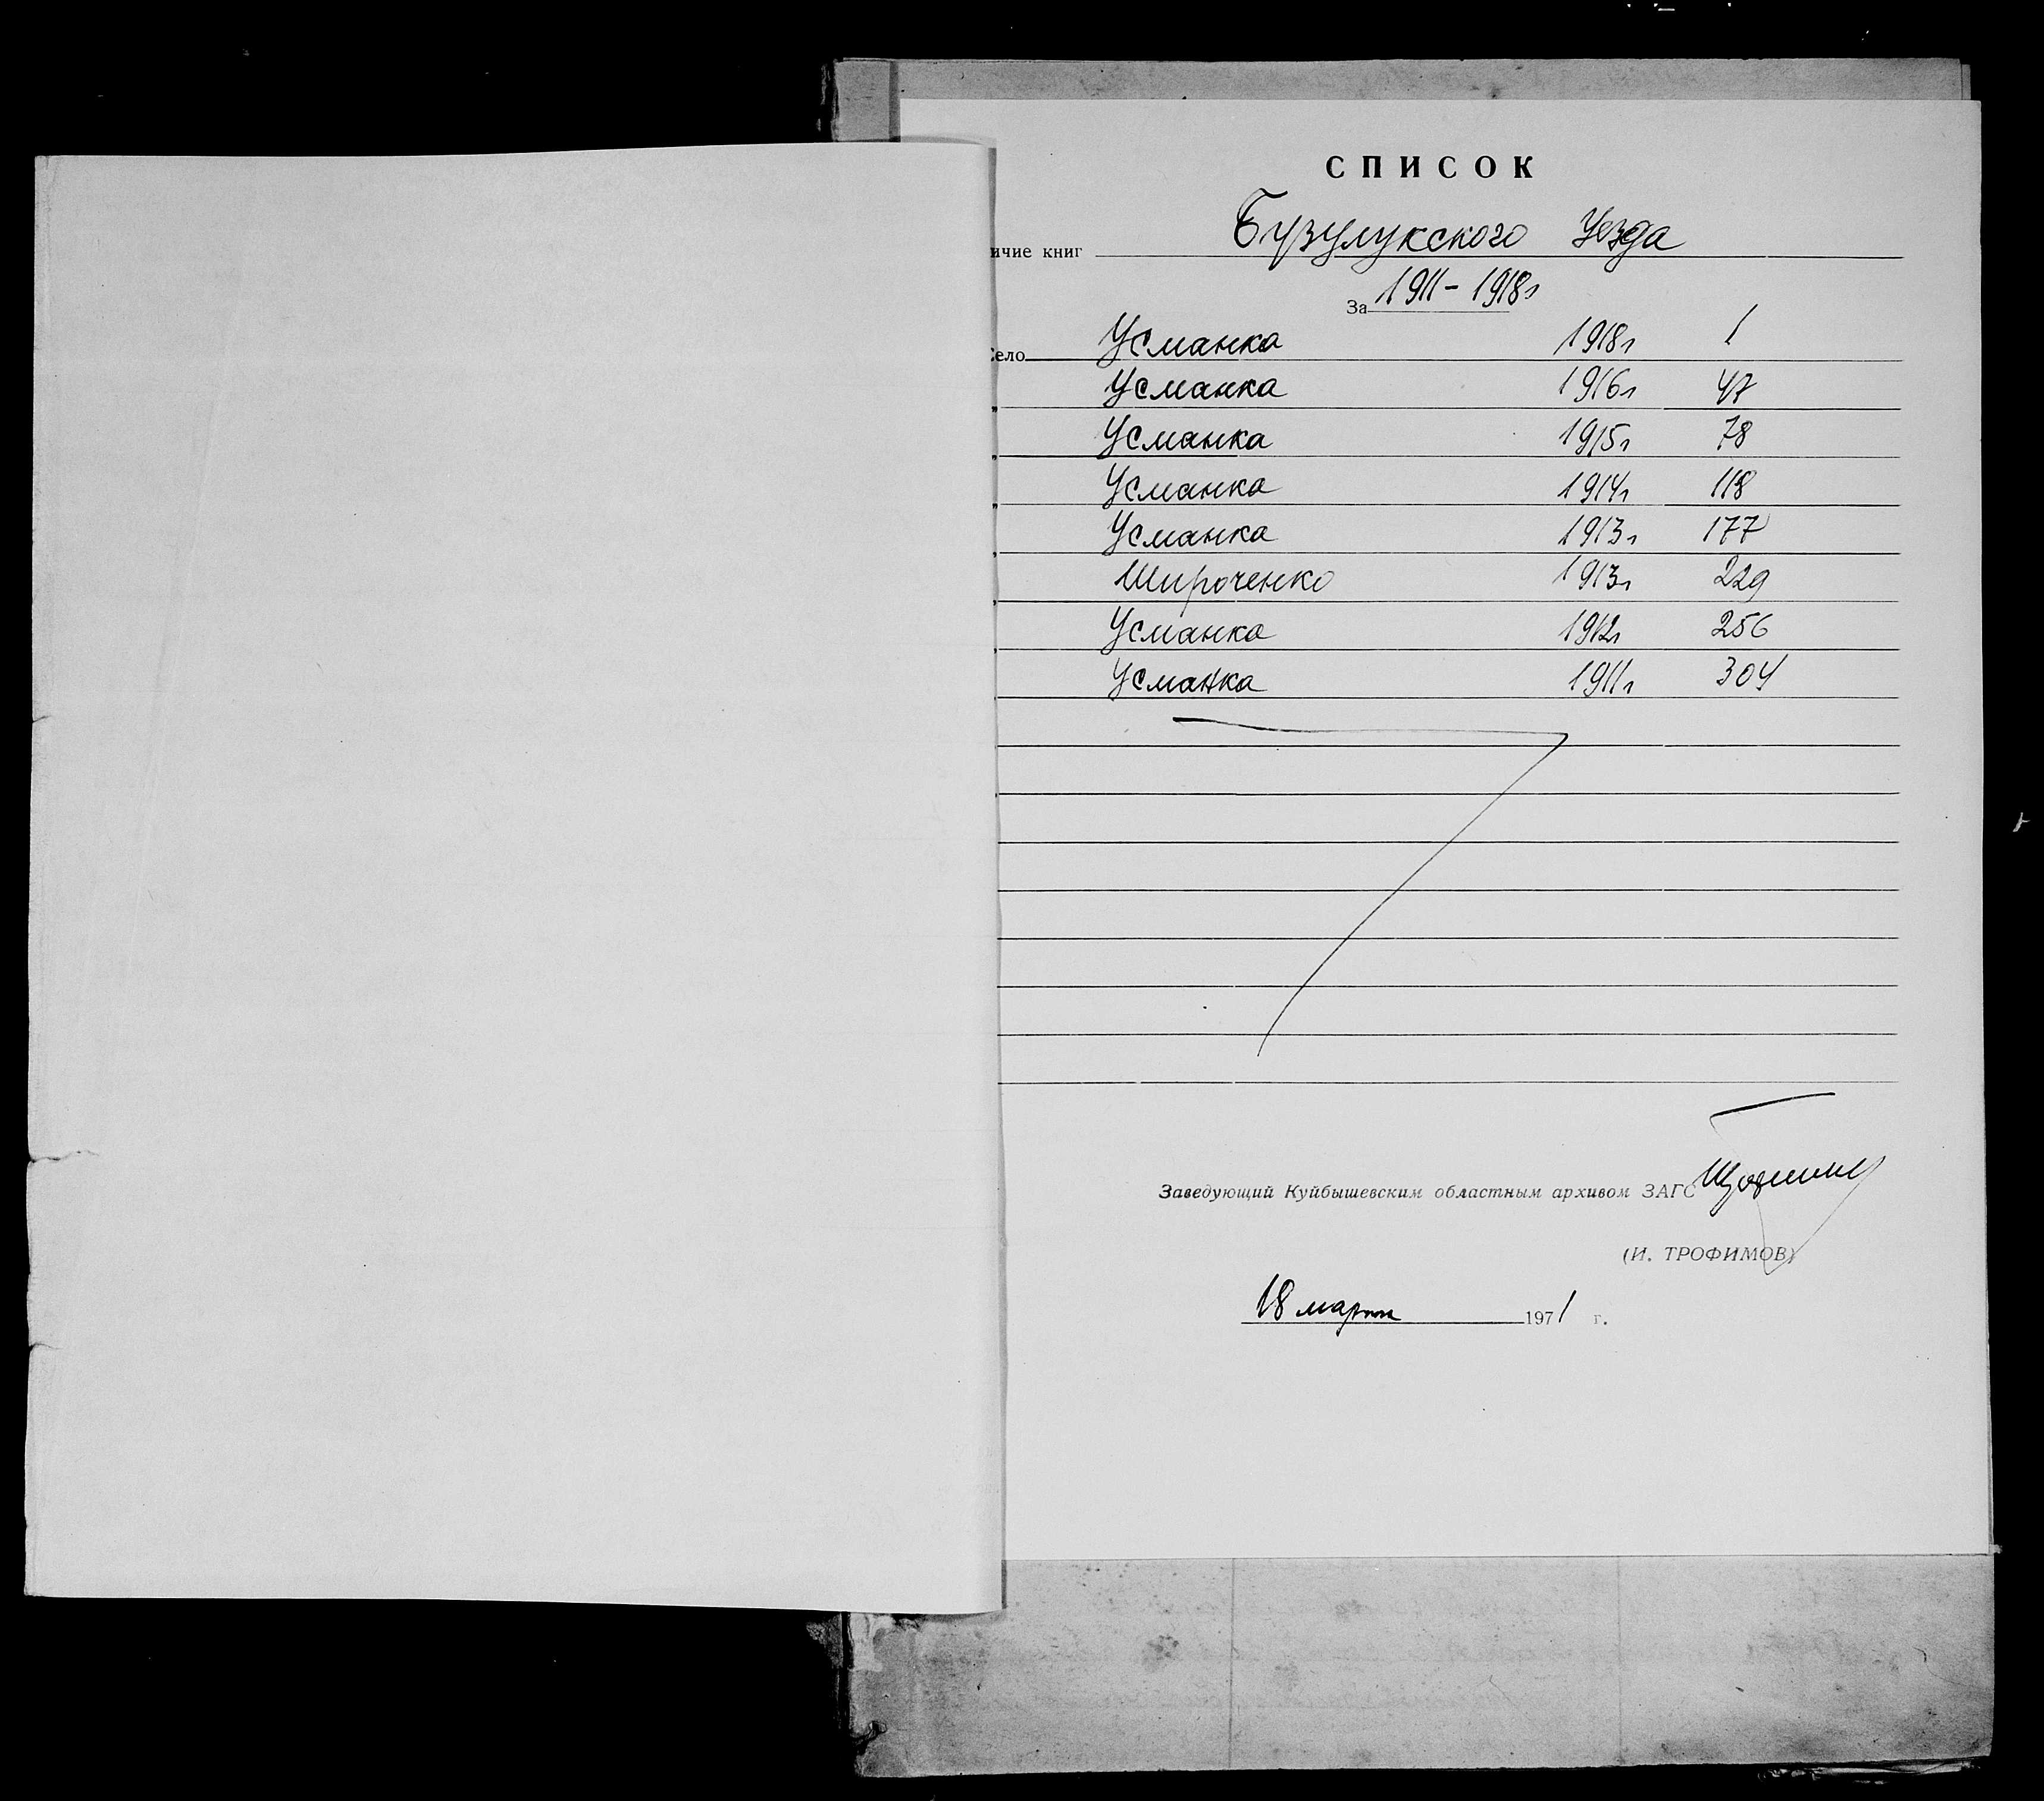 СПИСОК
ичие книг Бузулукского Уезда
За 1911-1918г
Село Усманка 1918г 1
" Усманка 1916г 47
" Усманка 1915г 78
" Усманка 1914г 118
" Усманка 1913г 177
" Широченко 1913г 229
" Усманка 1912г 256
Усманка 1911г 304
Заведующий Куйбышевским областным архивом ЗАГС
(И. ТРОФИМОВ)
18 марта 1971 г.